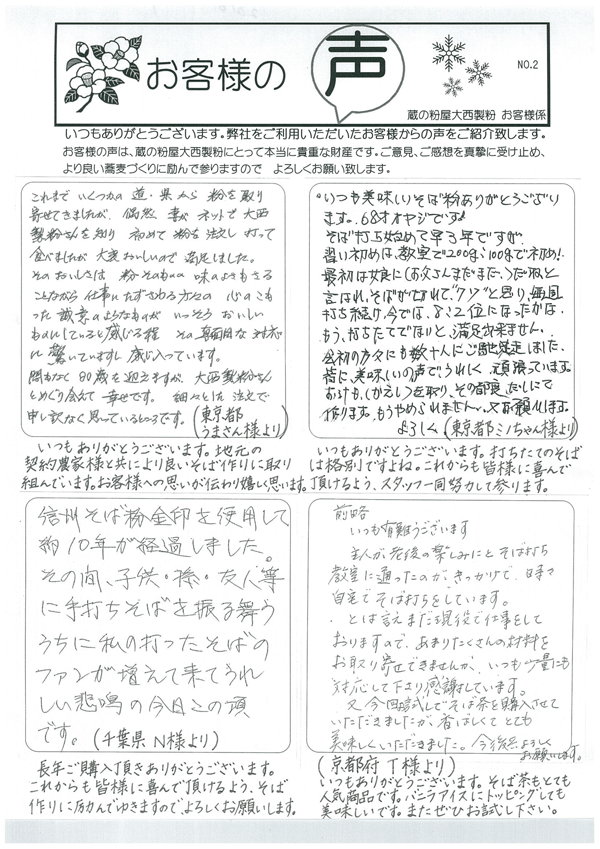 お客様の声
NO.2
蔵の粉屋大西製粉 お客様係
いつもありがとうございます。弊社をご利用いただいたお客様からの声をご紹介致します。
お客様の声は、蔵の粉屋大西製粉にとって本当に貴重な財産です。ご意見、ご感想を真摯に受け止め、
より良い蕎麦づくりに励んで参りますので よろしくお願い致します。
これまで いくつかの 道・県から 粉を取り
寄せてきましたが、偶然 妻が ネットで 大西
製粉さんを知り 初めて 粉を 注文し 打って
食べましたが 大変 おいしいので 満足しました。
そのおいしさは 粉そのものの 味のよさもさる
ことながら 仕事にたずさわる方々の 心のこも
った 誠意のようなものが いっそう おいしい
ものにしていると 感じる程 その 真面目な 対応
に 驚いていますし 感じ入っています。
間もなく 80歳を迎えますが、大西製粉さんと
めぐり会えて 幸せです。 細々とした 注文で
申し訳なく思っているところです。
(東京都
うまさん様より)
いつもありがとうございます。地元の
契約農家様と共により良いそば作りに取り
組んでいます。お客様への思いが伝わり嬉しく思います。
いつも美味しいそば粉ありがとうござい
ます。68才オヤジです。
そば打ち始めて早3年ですが、
習い初めは、教室で200g、100gで初め!
最初は娘に(お父さんまだまだ、)だねと
言はれ、そばが切れて"クソ"と思い、毎回
打ち続け、今では、8:2位になったかな、
もう、打たてでないと、満足出来ません。
会初の方々にも数十人にご馳走しました、
皆に、美味しいの声でうれしく 頑張っています。
おまけも、(かえし)を取り、その都度、だしにて
作ります。もうやめられません。又お願いします。
よろしく(東京都ミノちゃん様より)
いつもありがとうございます。打ちたてのそば
は格別ですよね。これからも皆様に喜んで
頂けるよう、スタッフ一同努力して参ります。
信州そば粉金印を使用して
約10年が経過しました。
その間、子供・孫・友人等
に手打ちそばを振る舞う
うちに私の打ったそばの
ファンが増えて来てうれ
しい悲鳴の今日この頃
です。(千葉県 N様より)
長年ご購入頂きありがとうございます。
これからも皆様に喜んで頂けるよう、そば
作りに励んでゆきますのでよろしくお願いします。
前略
いつも有難うございます
主人が老後の楽しみにと そば打ち
教室に通ったのが、きっかけで、時々
自宅でそば打ちをしています。
とは言えまだ現役で仕事をして
おりますので、あまりたくさんの材料を
お取り寄せできませんが、いつも少量にも
対応して下さり感謝しています。
又、今回試しでそば茶を購入させて
いただきましたが、香ばしくて とても
美味しくいただきました。今後共よろしく
お願いします。
(京都府 T様より)
いつもありがとうございます。そば茶も、とても
人気商品です。バニラアイスにトッピングしても
美味しいです。またぜひお試し下さい。